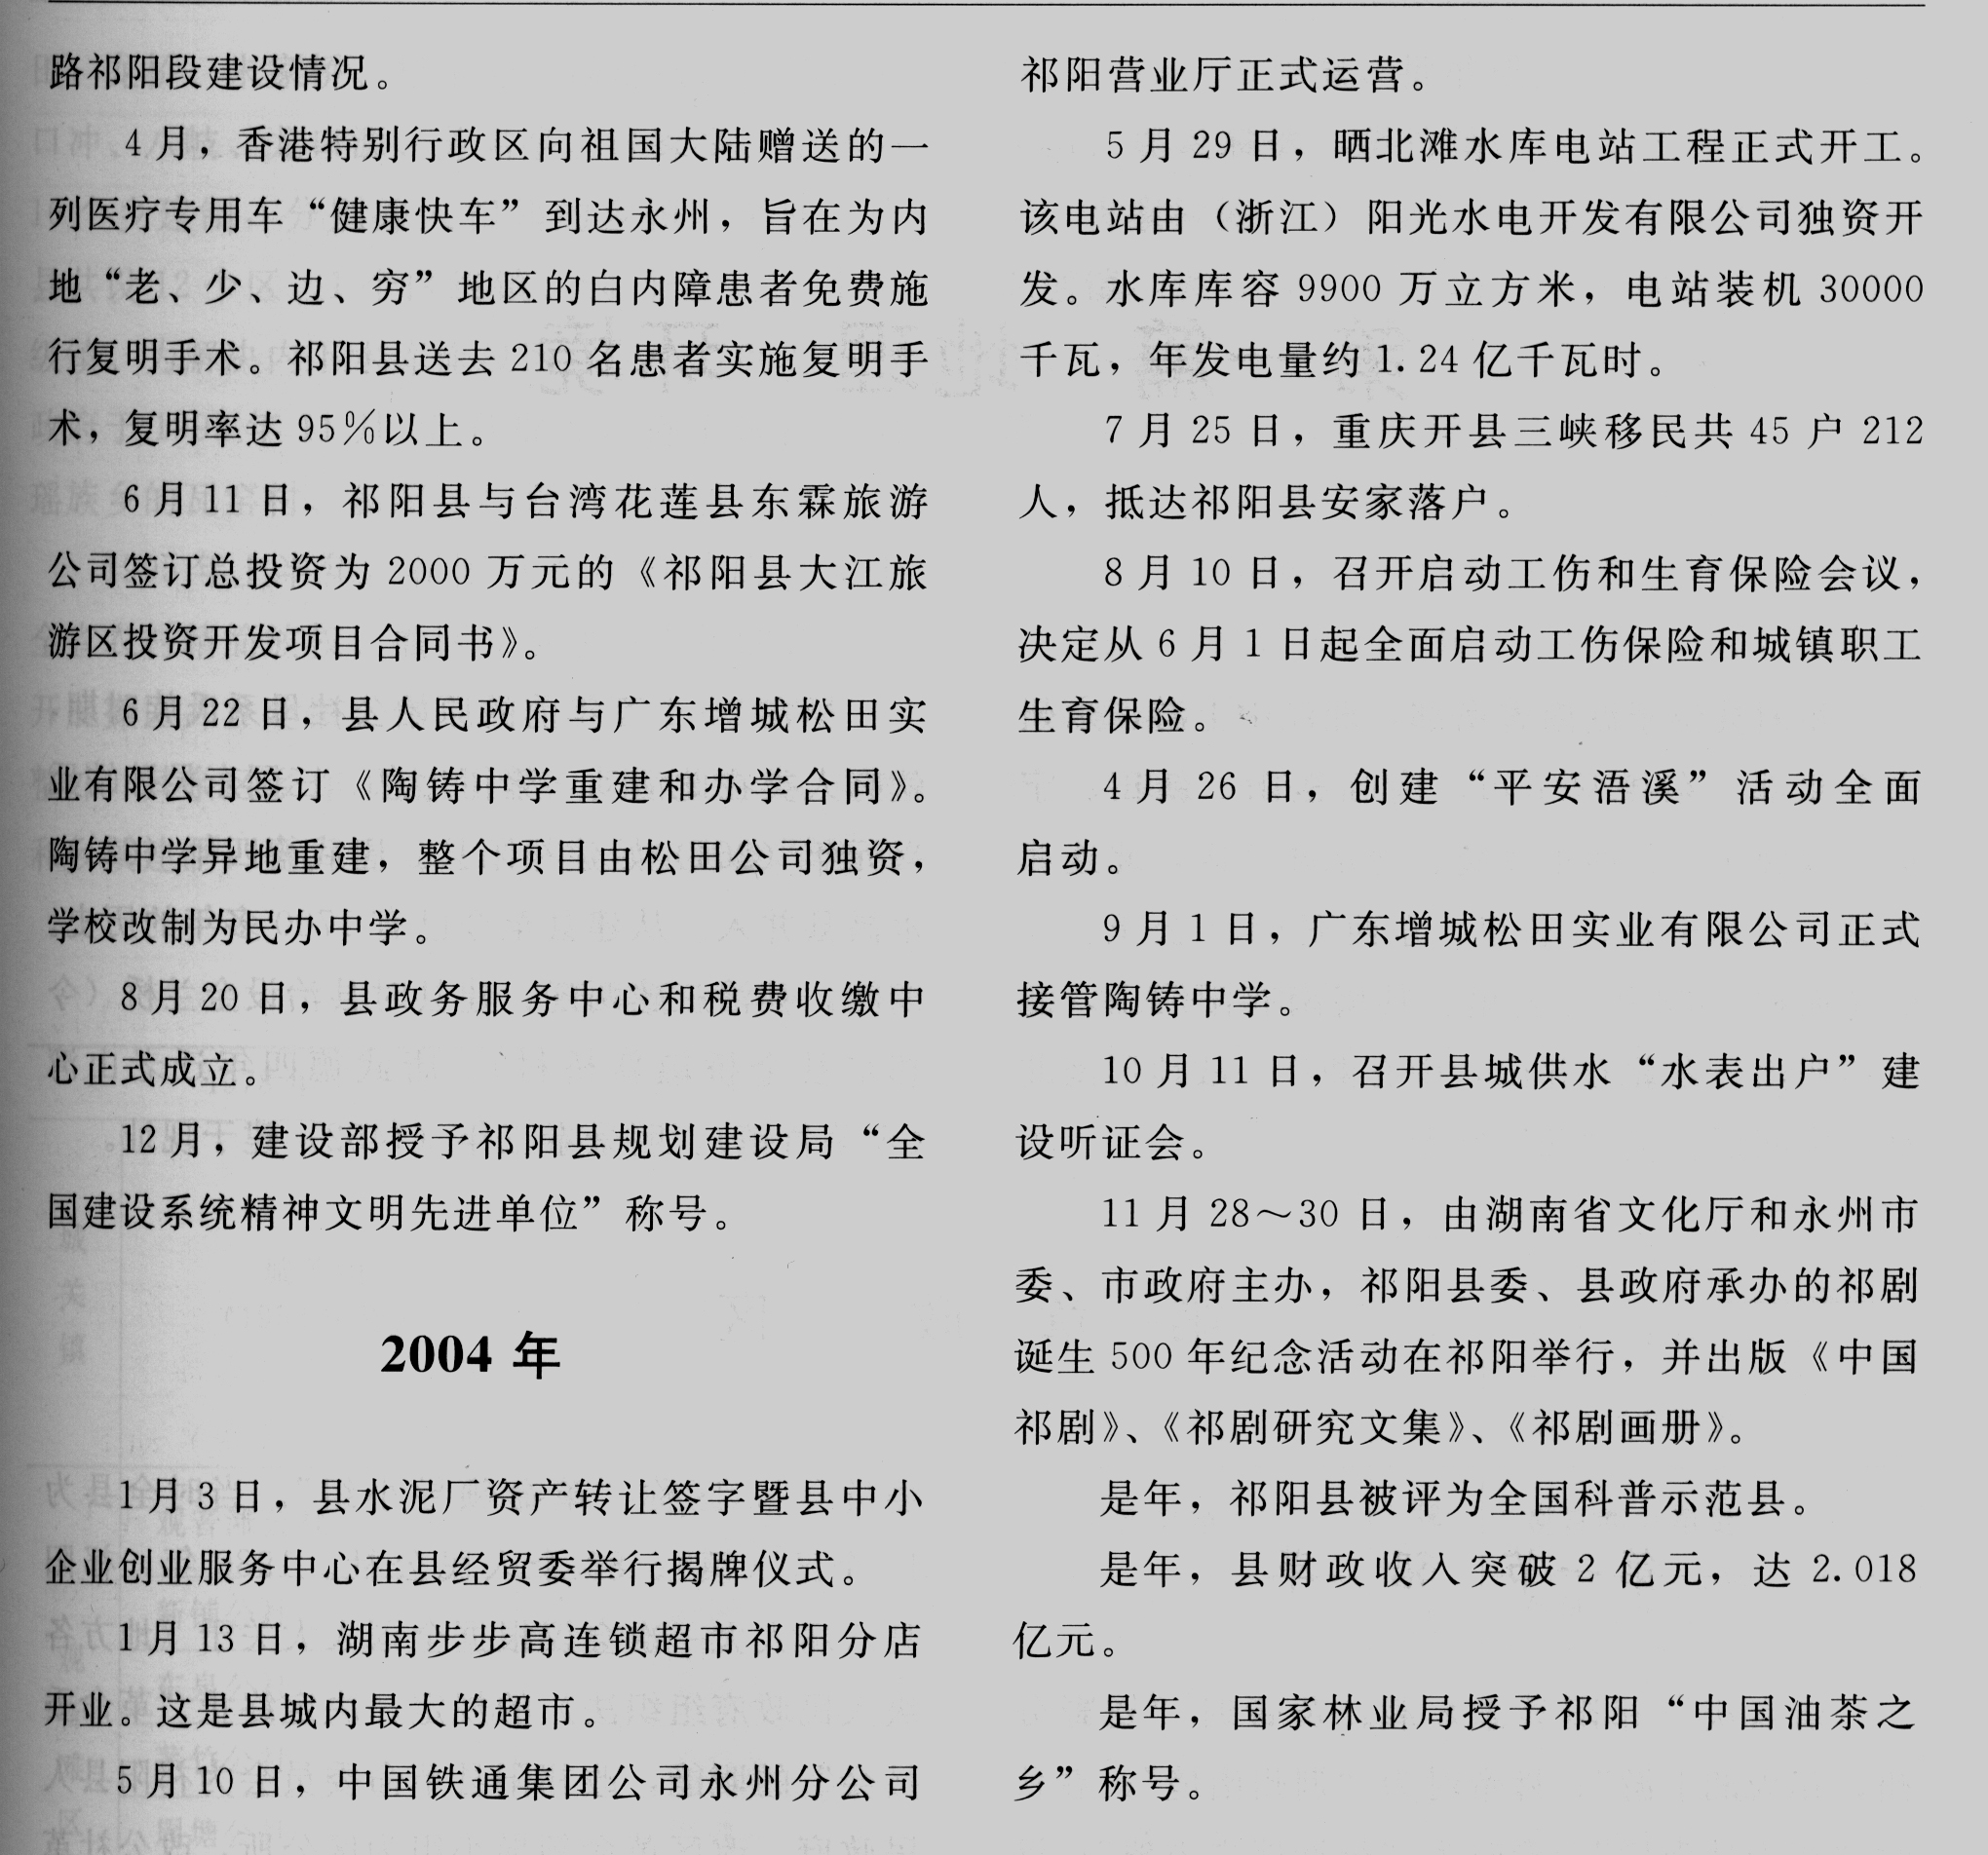 路祁阳段建设情况。
4月，香港特别行政区向祖国大陆赠送的一
列医疗专用车“健康快车”到达永州，旨在为内
地“老、少、边、穷”地区的白内障患者免费施
行复明手术。祁阳县送去210名患者实施复明手
术，复明率达95％以上。
6月11日，祁阳县与台湾花莲县东霖旅游
公司签订总投资为2000万元的《祁阳县大江旅
游区投资开发项目合同书》。
6月22日，县人民政府与广东增城松田实
业有限公司签订《陶铸中学重建和办学合同》。
陶铸中学异地重建，整个项目由松田公司独资，
学校改制为民办中学。
8月20日，县政务服务中心和税费收缴中
心正式成立。
12月，建设部授予祁阳县规划建设局“全
国建设系统精神文明先进单位”称号。
2004 年
1月3日，县水泥厂资产转让签字暨县中小
企业创业服务中心在县经贸委举行揭牌仪式。
1月13日，湖南步步高连锁超市祁阳分店
开业。这是县城内最大的超市。
5月10日，中国铁通集团公司永州分公司
祁阳营业厅正式运营。
5月29日，晒北滩水库电站工程正式开工。
该电站由（浙江）阳光水电开发有限公司独资开
发。水库库容9900万立方米，电站装机30000
千瓦，年发电量约1.24亿千瓦时。
7月25日，重庆开县三峡移民共45户212
人，抵达祁阳县安家落户。
8月10日，召开启动工伤和生育保险会议，
决定从6月1日起全面启动工伤保险和城镇职工
生育保险。
4月26日，创建“平安浯溪”活动全面
启动。
9月1日，广东增城松田实业有限公司正式
接管陶铸中学。
10月11日，召开县城供水“水表出户”建
设听证会。
11月28～30日，由湖南省文化厅和永州市
委、市政府主办，祁阳县委、县政府承办的祁剧
诞生500年纪念活动在祁阳举行，并出版《中国
祁剧》、《祁剧研究文集》、《祁剧画册》。
是年，祁阳县被评为全国科普示范县。
是年，县财政收入突破2亿元，达2.018
亿元。
是年，国家林业局授予祁阳“中国油茶之
乡”称号。